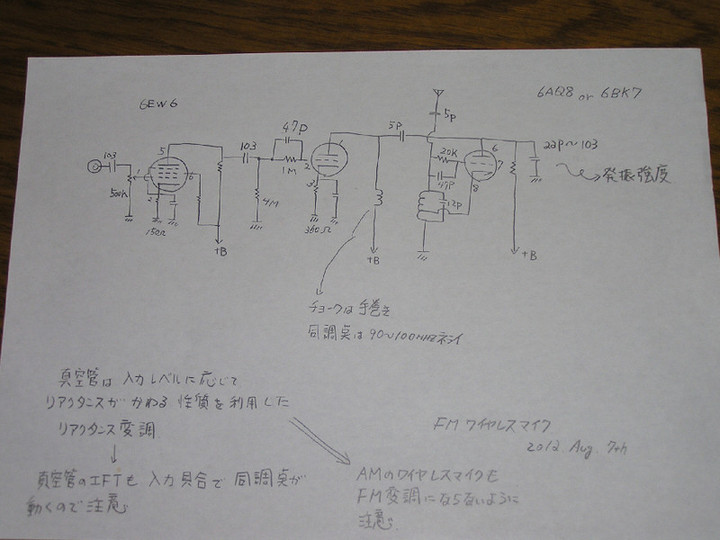 6EW6
6AQ8 or 6BK7
103
5
1
6
2
500K
150Ω
+B
103
47P
1M
4M
2
1
3
360Ω
+B
5P
5P
20K
47P
12P
6
7
8
+B
22P～103
発振強度
チョークは手巻き
同調点は90～100MHzネライ
真空管は入力レベルに応じて
リアクタンスがかわる性質を利用した
リアクタンス変調
真空管のIFTも入力具合で同調点が
動くので注意
FMワイヤレスマイク
2012. Aug. 7th
AMのワイヤレスマイクも
FM変調にならないように
注意